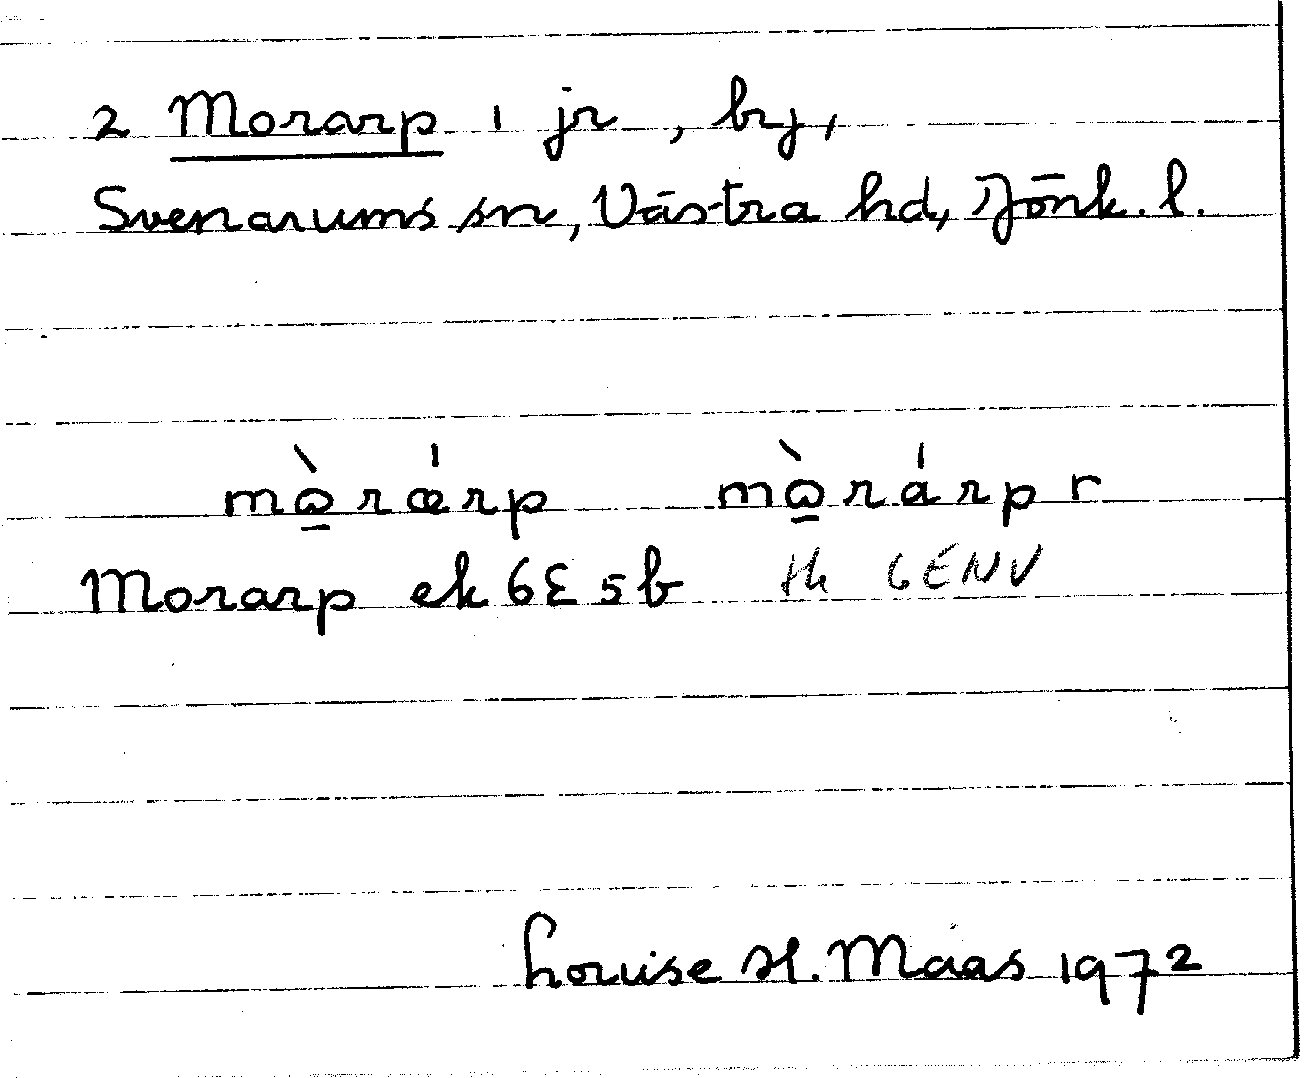 2 Morarp, jr, by,
Svenarums sn, Västra hd, Jönk. l.
mò̱rǽrp mò̱rárp r
Morarp ek 6E5b th 6ENV
Louise H. Maas 1972